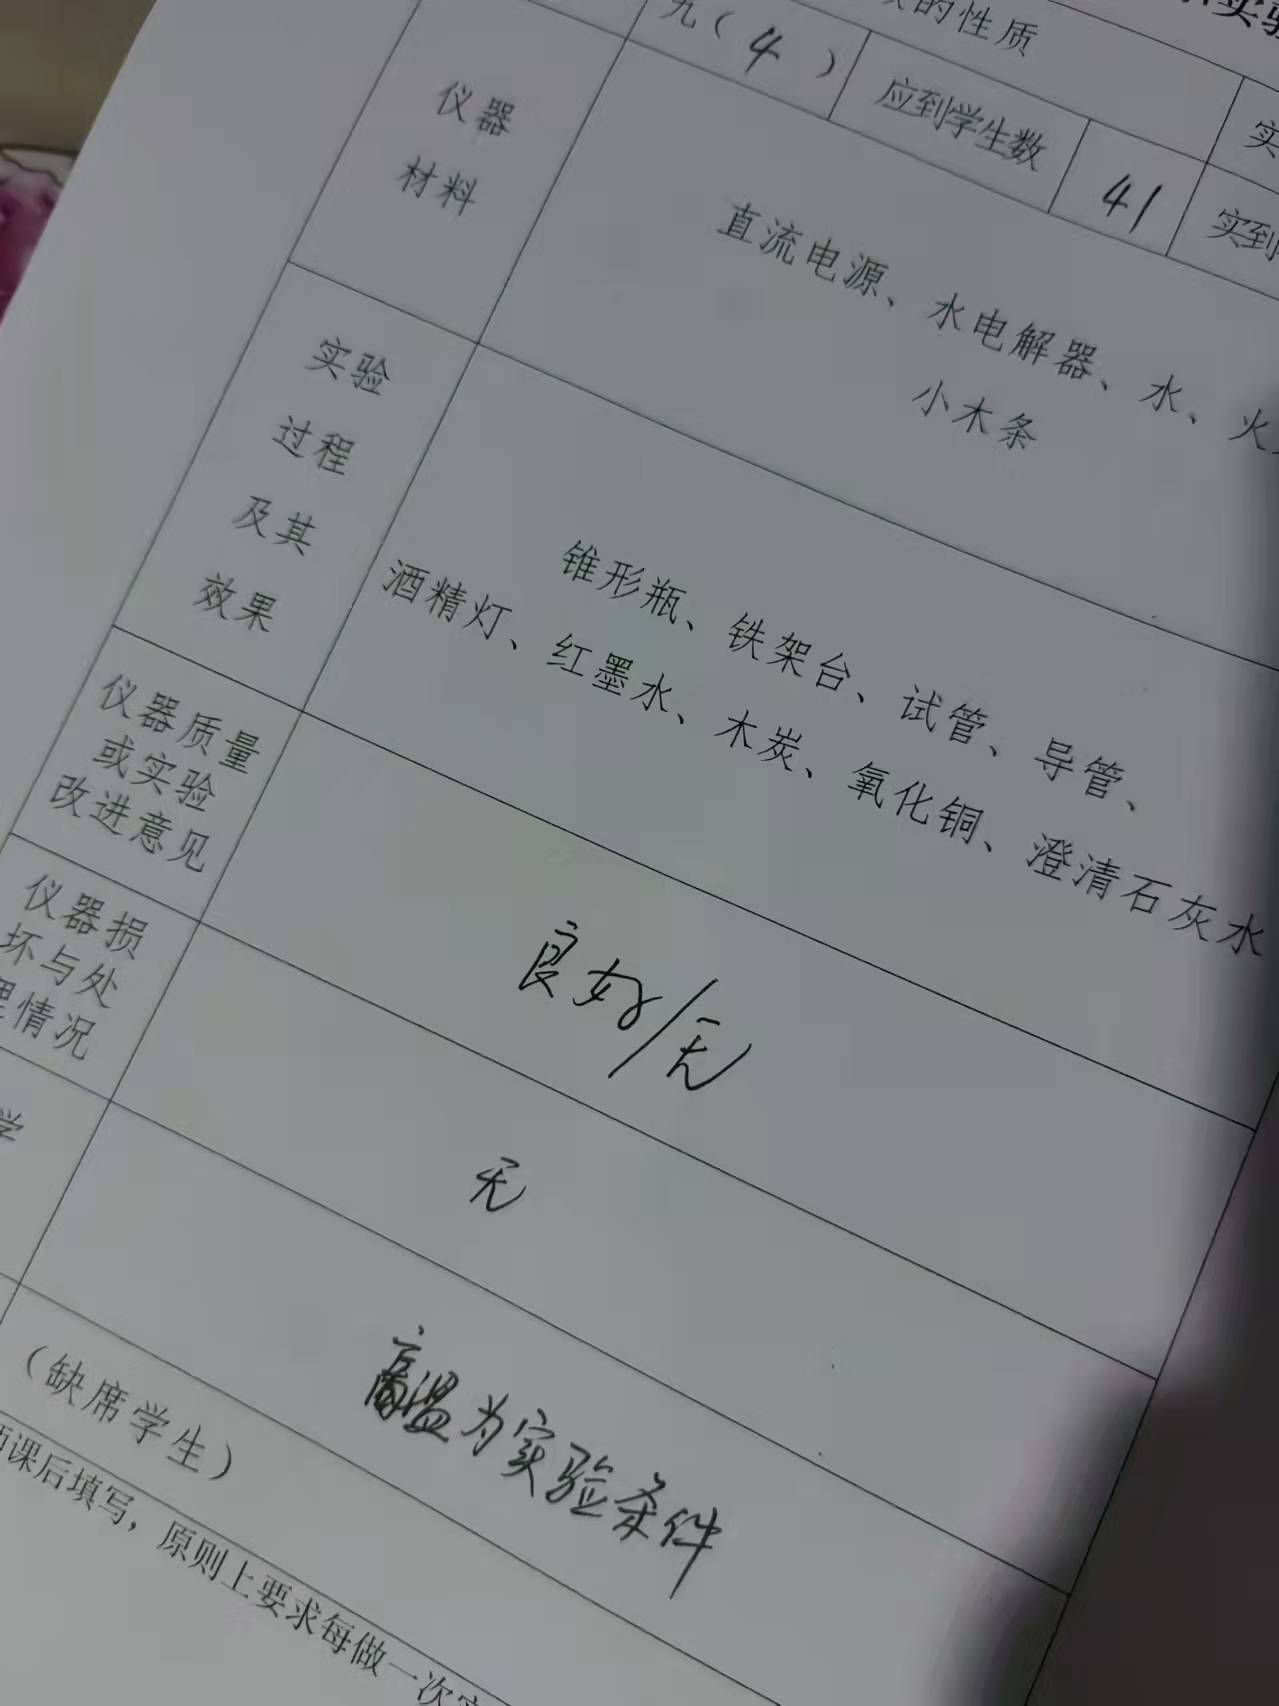 的性质
九（4）
应到学生数
41
实到
仪器
材料
直流电源、水电解器、水、火
小木条
实验
过程
及其
效果
锥形瓶、铁架台、试管、导管、
酒精灯、红墨水、木炭、氧化铜、澄清石灰水
仪器质量
或实验
改进意见
良好/无
仪器损
坏与处
理情况
无
学
高温为实验条件
（缺席学生）
课后填写，原则上要求每做一次